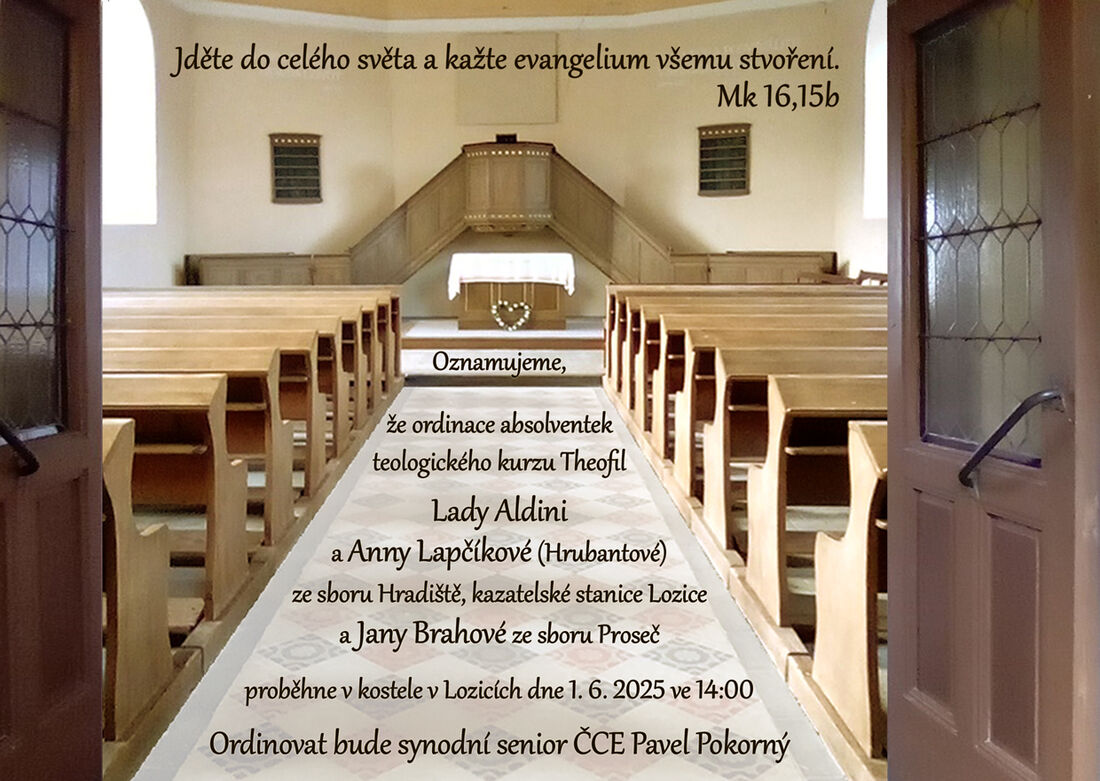 Jděte do celého světa a kažte evangelium všemu stvoření.
Mk 16,15b
Oznamujeme,
že ordinace absolventek
teologického kurzu Theofil
Lady Aldini
a Anny Lapčíkové (Hrubantové)
ze sboru Hradiště, kazatelské stanice Lozice
a Jany Brahové ze sboru Proseč
proběhne v kostele v Lozicích dne 1. 6. 2025 ve 14:00
Ordinovat bude synodní senior ČCE Pavel Pokorný